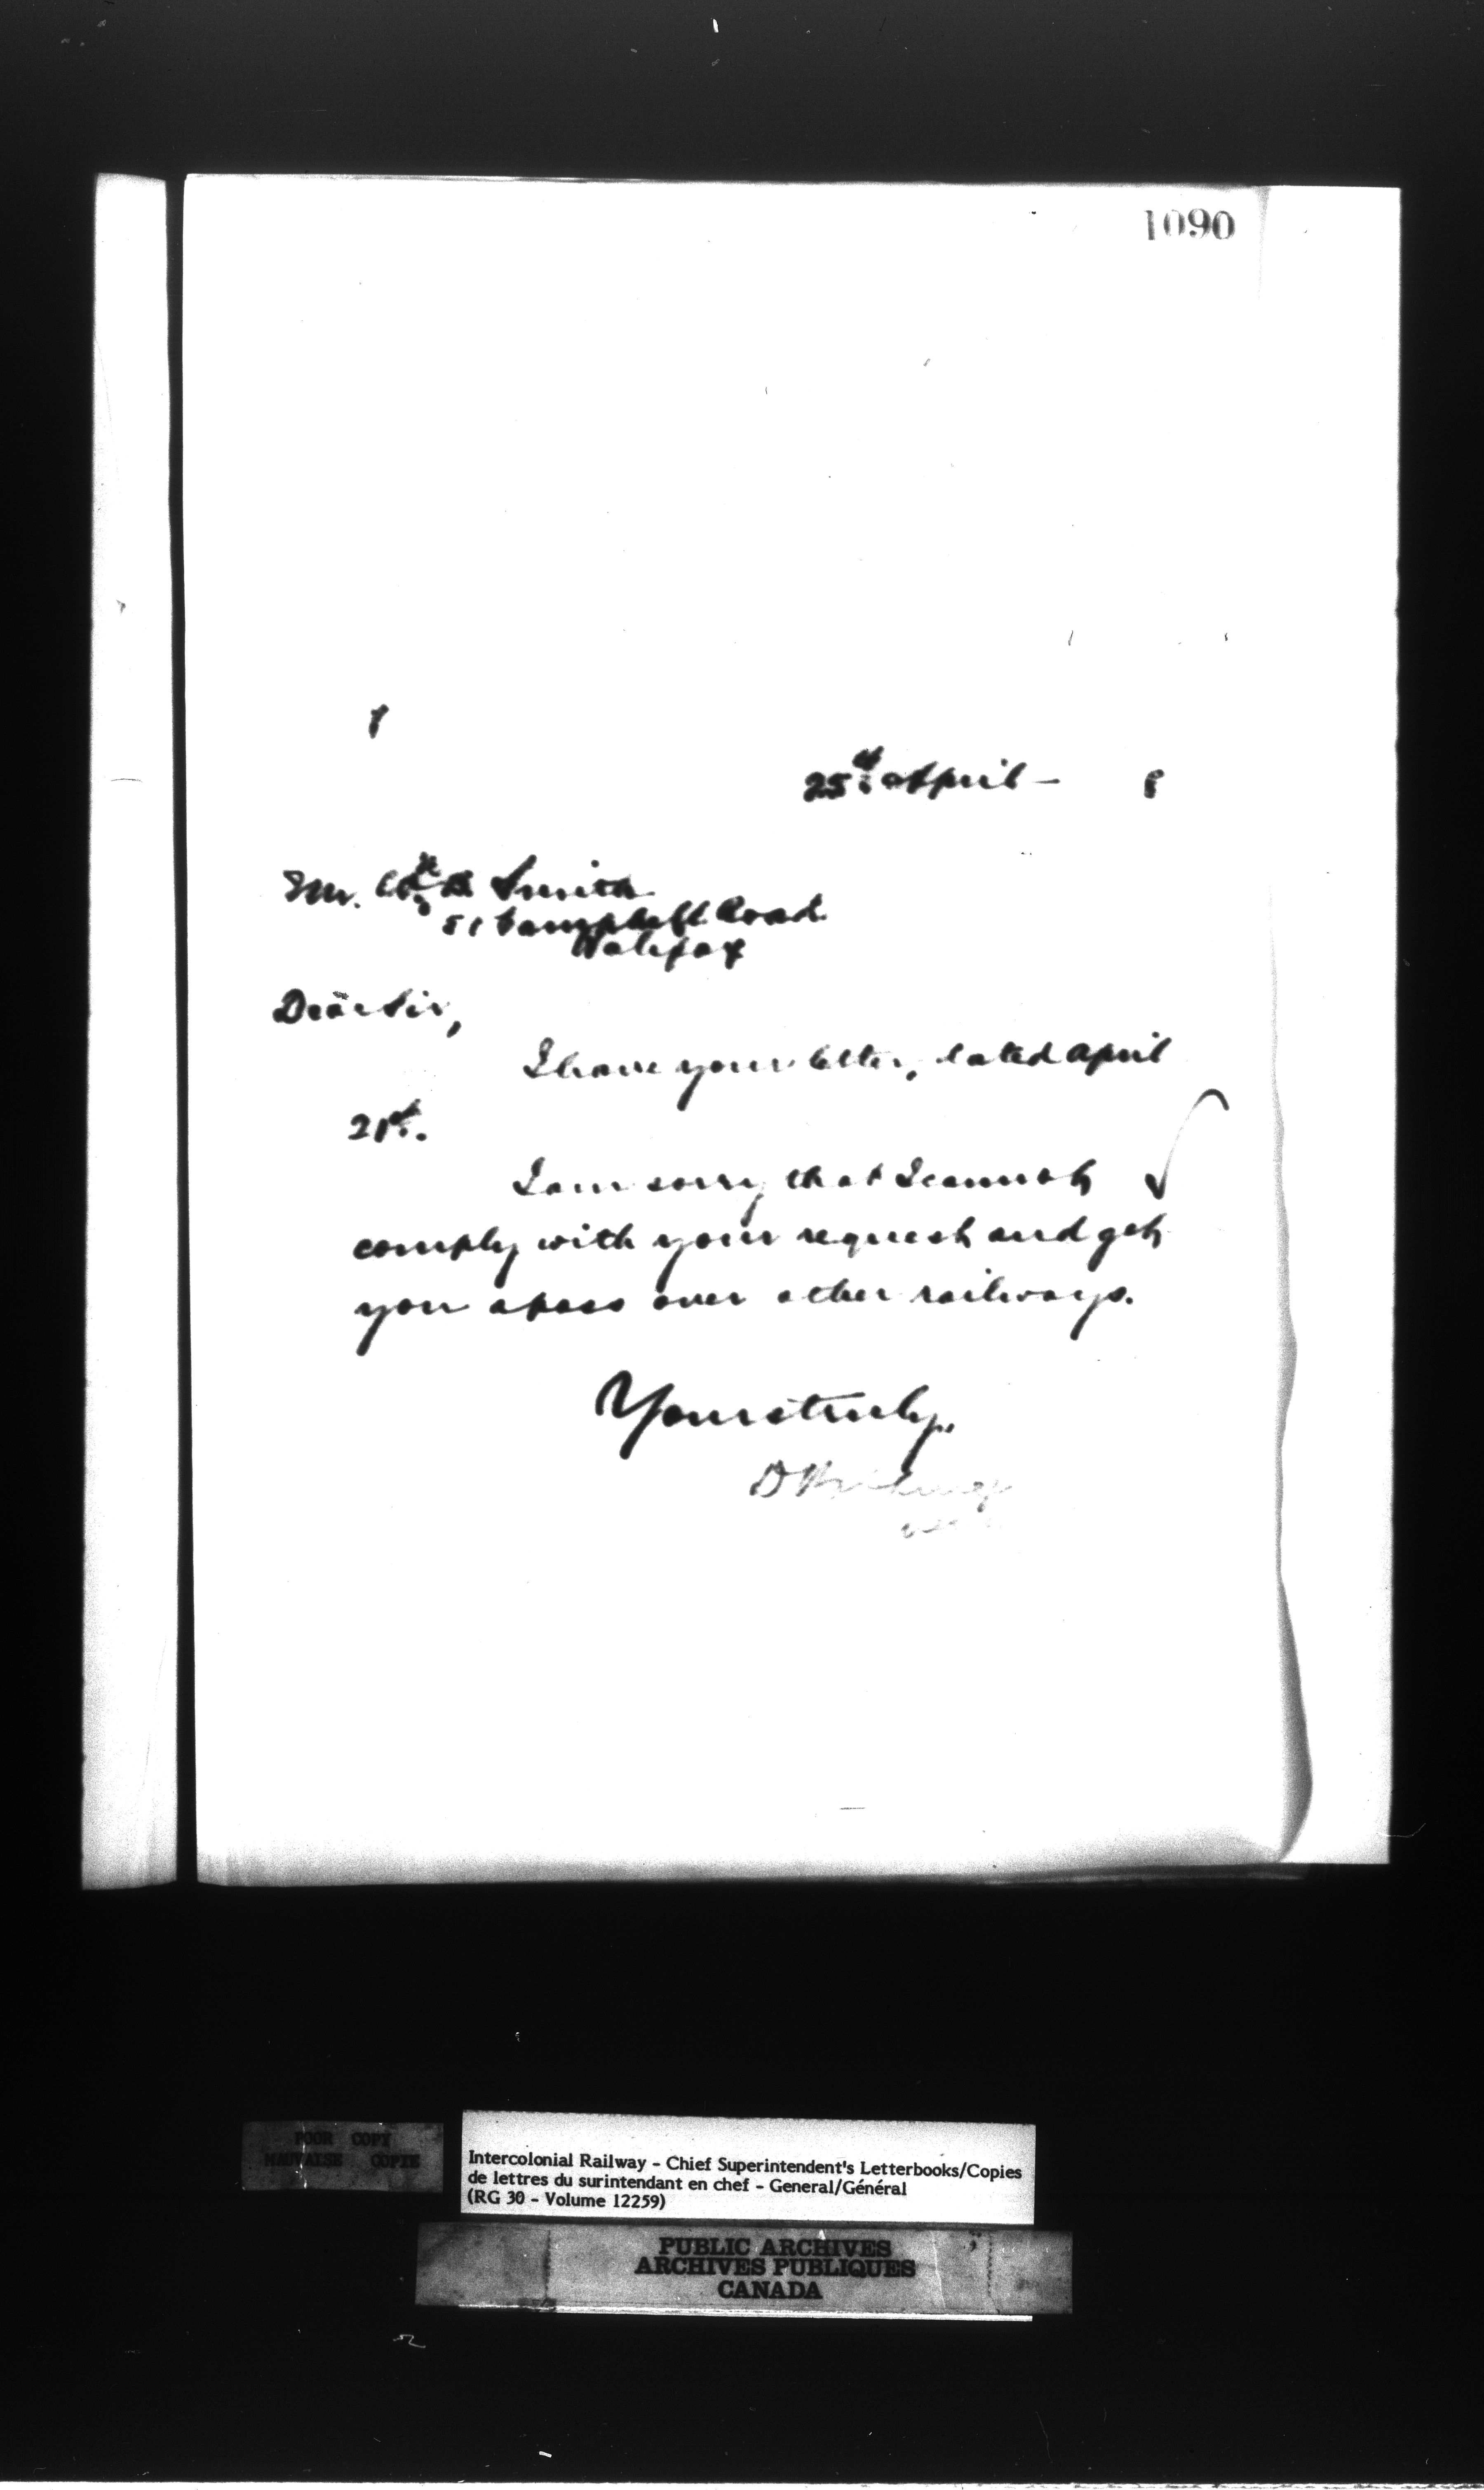 1090
25th April - 8
Mr. Smith
51 Campbell Road
Halifax
Dear Sir,
I have your letter, dated April
21st.
I am sorry that I cannot
comply with your request and get
you a pass over other railways.
Yours truly,
D
POOR COPY
MAUVAISE COPIE
Intercolonial Railway - Chief Superintendent's Letterbooks/Copies
de lettres du surintendant en chef - General/Général
(RG 30 - Volume 12259)
PUBLIC ARCHIVES
ARCHIVES PUBLIQUES
CANADA